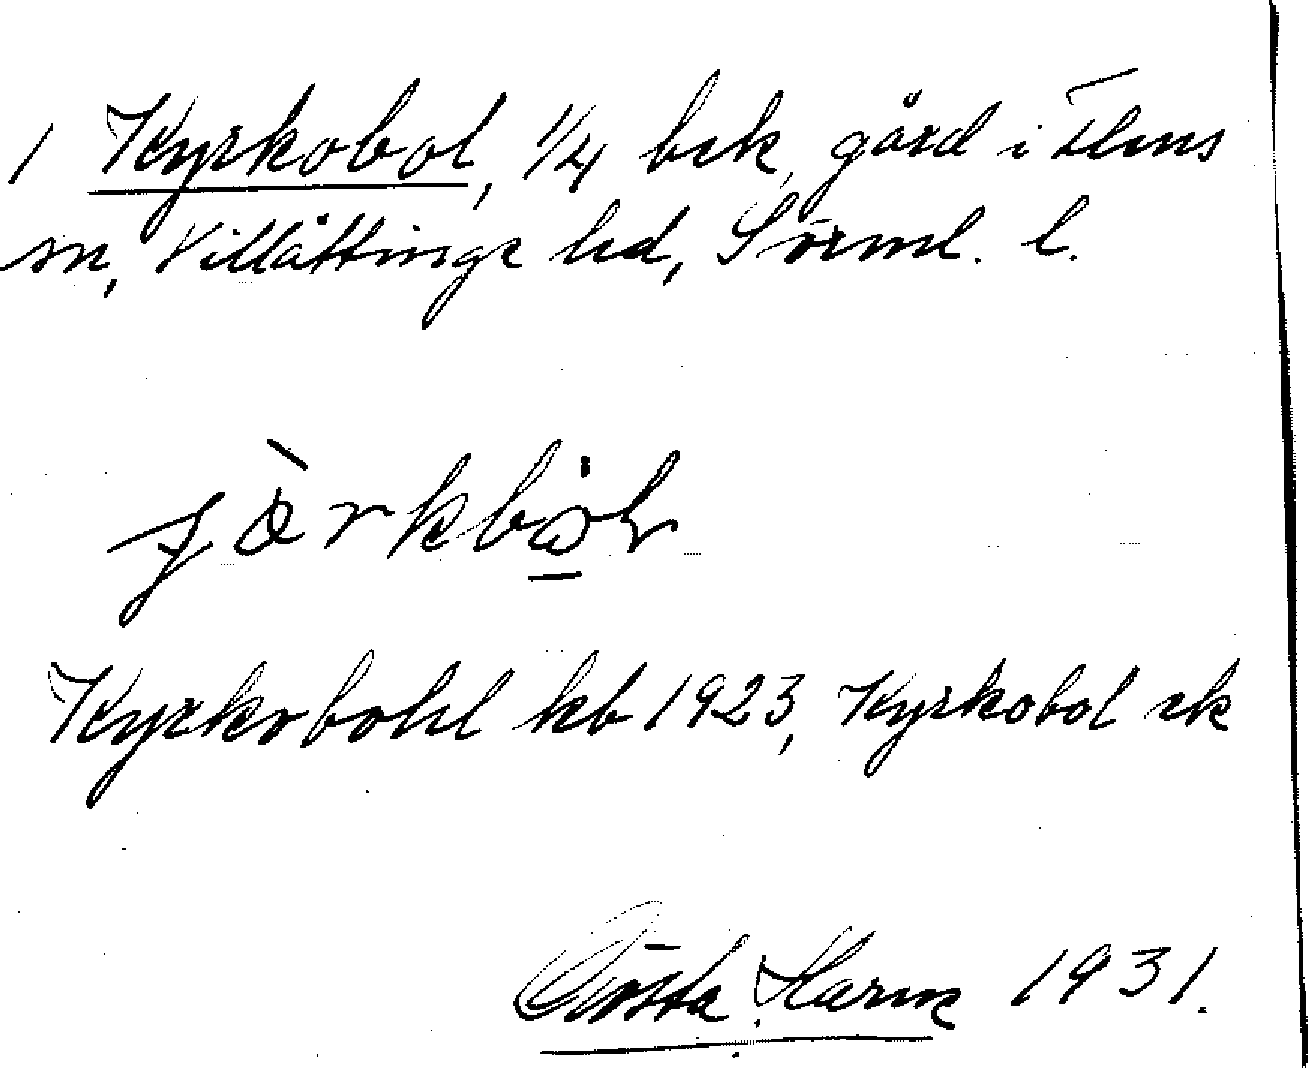 1 Kyrkobol, 1/4 brk, gård i Flens
sn, Villåttinge hd, Sörml. l.
Kyrkobohl kb 1923, Kyrkobol rk
Gösta Harm 1931.